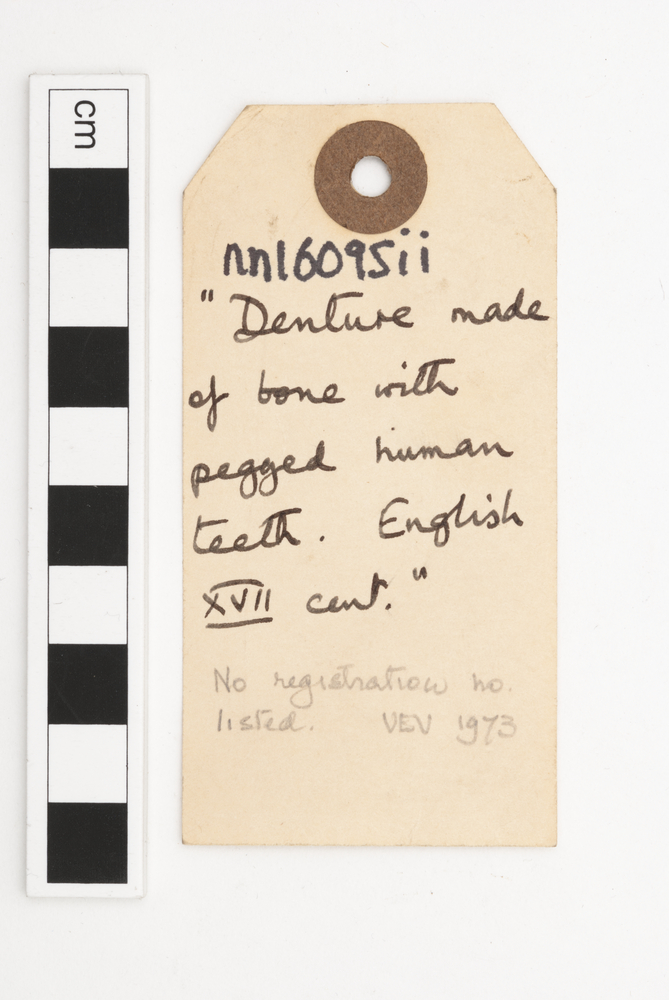 cm
nn16095ii
"Denture made
of bone with
pegged human
teeth. English
XVII cent."
No registration no.
listed. VEV 1973